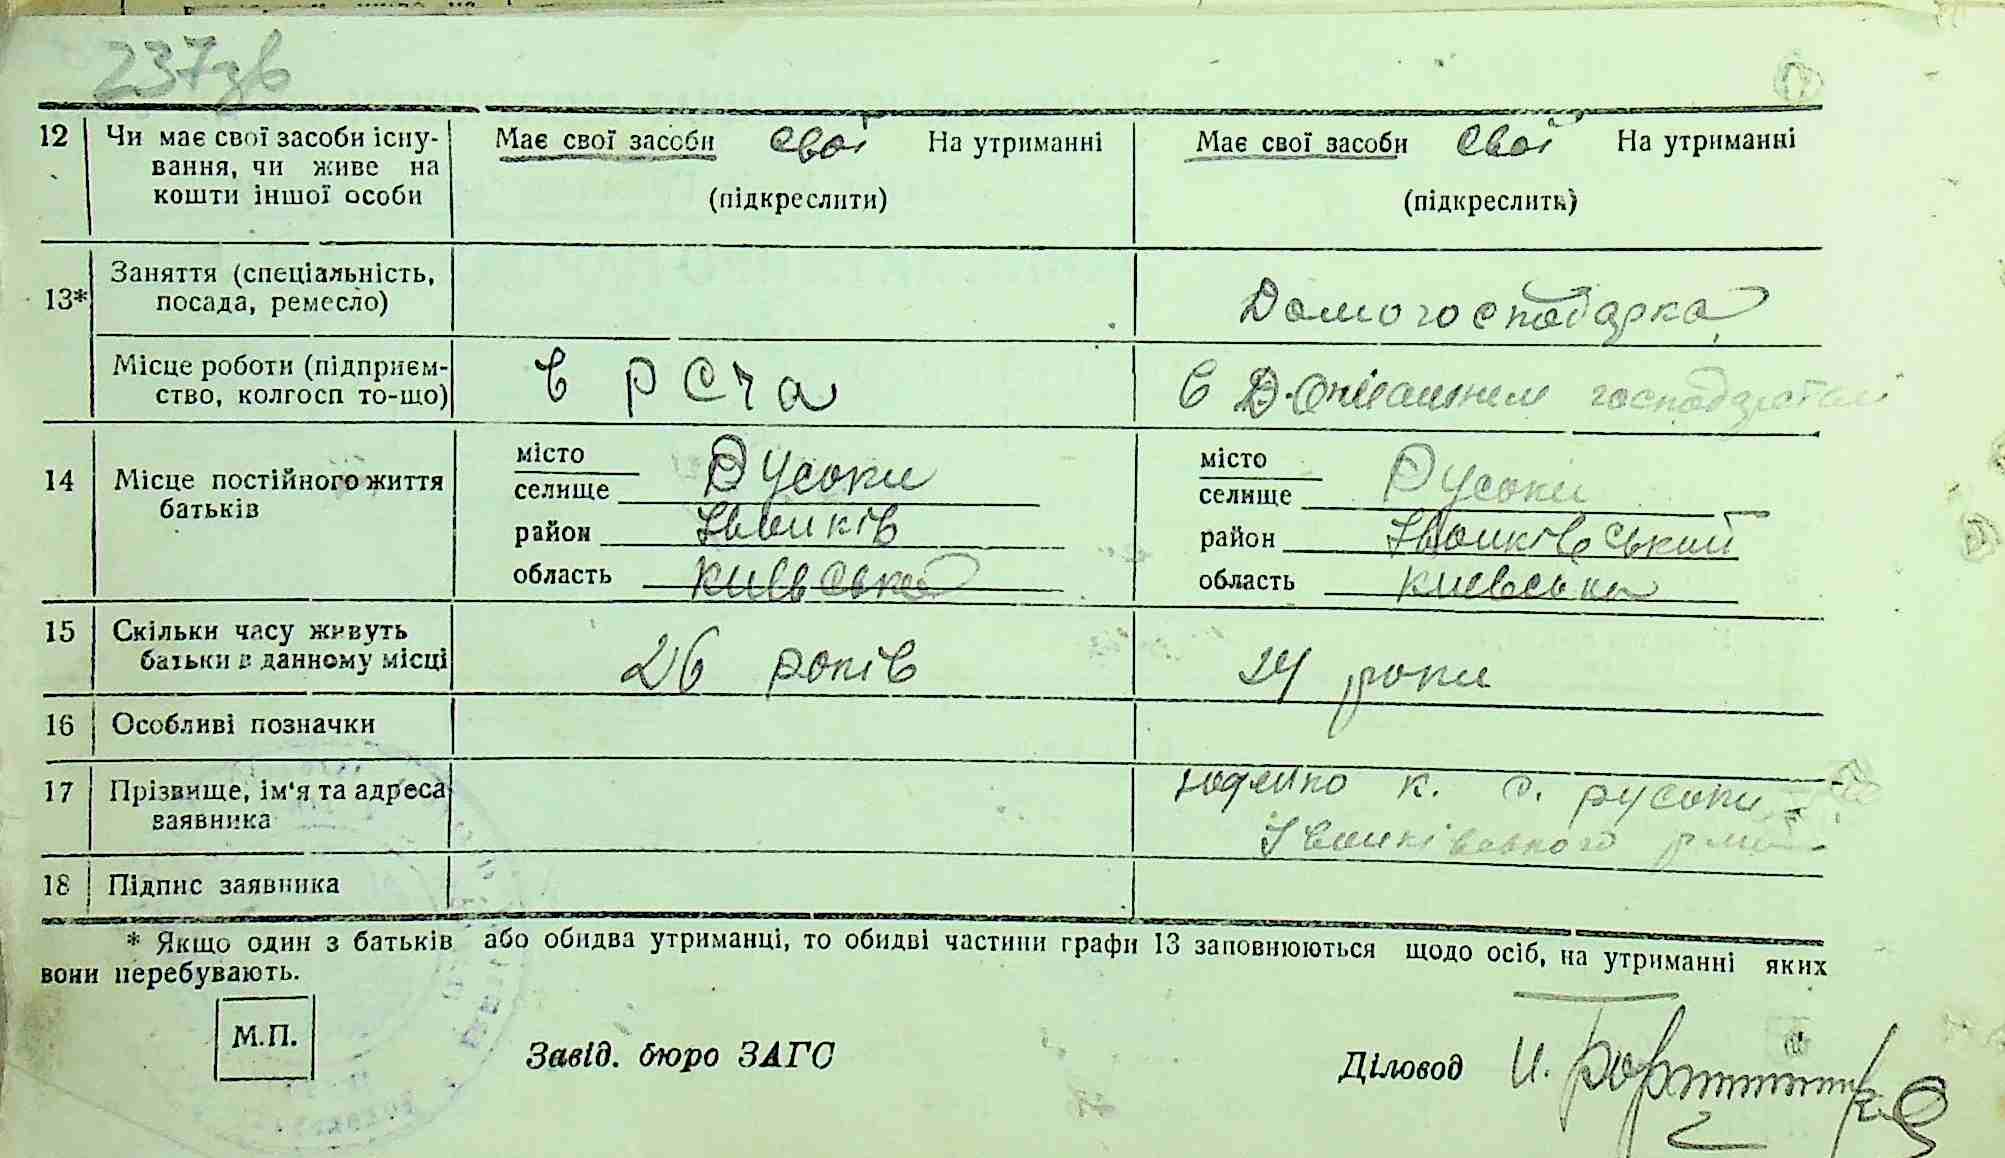 237зв
12 Чи має свої засоби існу- Має свої засоби свої На утриманні Має свої засоби свої На утриманні
вання, чи живе на
кошти іншої особи (підкреслити) (підкреслить)
Заняття (спеціальність,
13* посада, ремесло) Домогосподарка
Місце роботи (підприєм- в РСЧА в Домашнем
ство, колгосп то-що)
місто Русоки місто Русоки
14 Місце постійного життя селище селище
батьків район Іванків район Іванківський
область київська область киевська
15 Скільки часу живуть
батьки в данному місці 26 років 24 роки
16 Особливі позначки
17 Прізвище, ім'я та адреса К. с. русоки
заявника Іванківського
18 Підпис заявника
* Якщо один з батьків або обидва утриманці, то обидві частини графи 13 заповнюються щодо осіб, на утриманні яких
вони перебувають.
М.П.
Завід. бюро ЗАГС Діловод И.